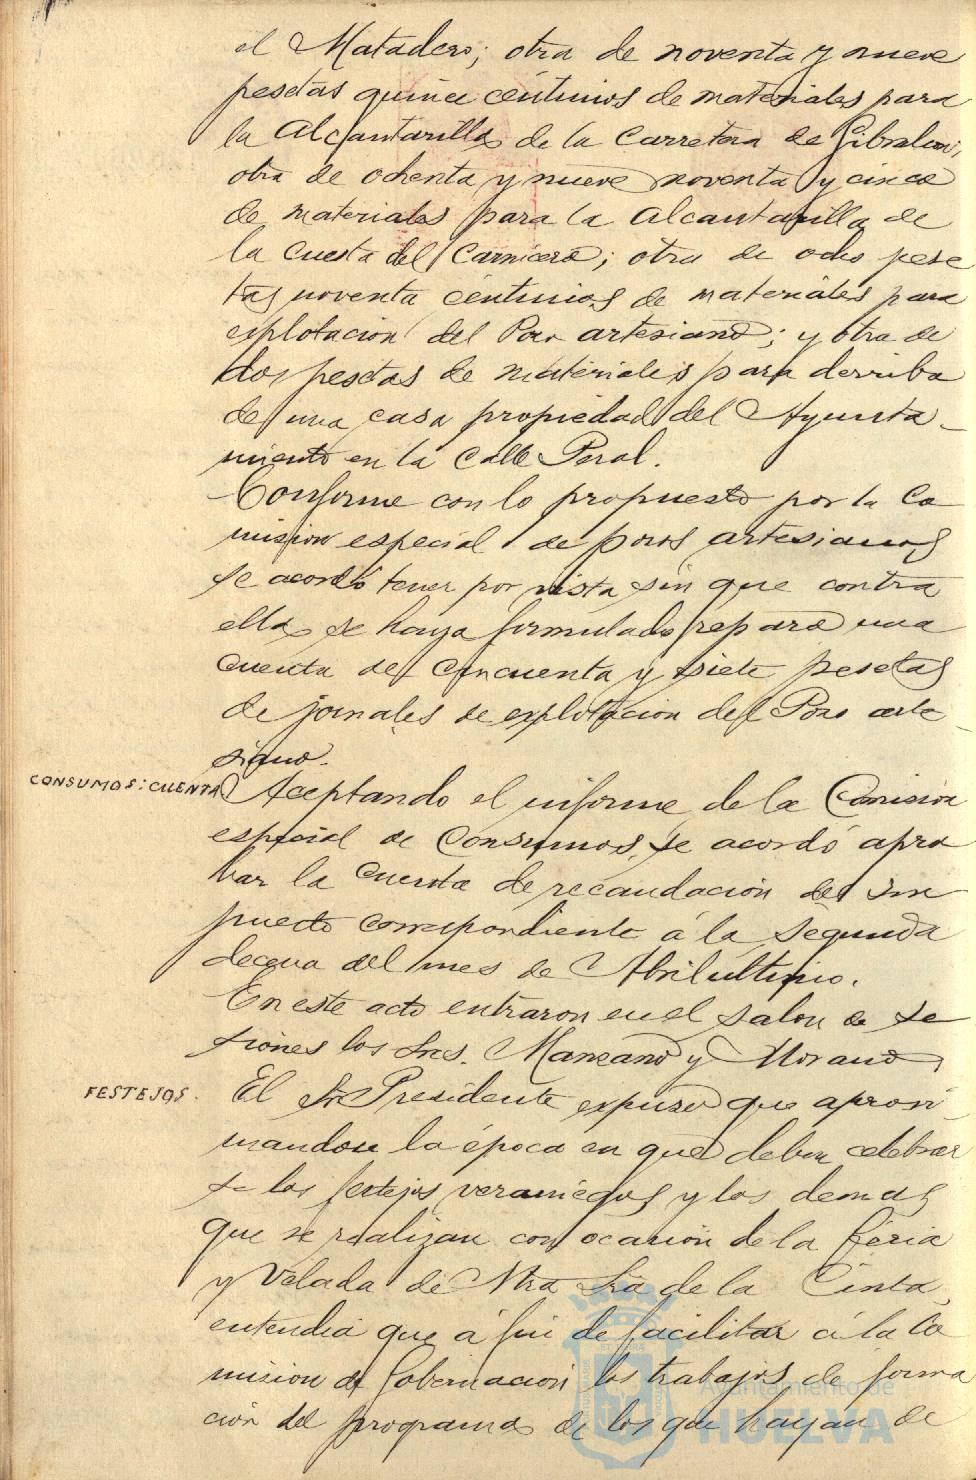 el Matadero; otra de noventa y nueve
pesetas quince céntimos de materiales para
la Alcantarilla de la Carretera de Gibraleon;
otra de ochenta y nueve noventa y cinco
de materiales para la Alcantarilla de
la Cuesta del Carnicero; otra de ocho pese
tas noventa céntimos de materiales para
esplotacion del Pozo artesiano; y otra de
dos pesetas de materiales para derribo
de una casa propiedad del Ayunta-
miento en la Calle Peral.
Conforme con lo propuesto por la Co
mision especial de pozos artesianos
se acordó tener por vista sin que contra
ella se haya formulado reparo una
cuenta de cincuenta y siete pesetas
de jornales de esplotacion del Pozo arte
siano.
CONSUMOS: CUENTA
Aceptando el informe de la Comisión
especial de Consumos, se acordó apro
bar la cuenta de recaudación del im
puesto correspondiente á la segunda
decena del mes de Abril ultimo.
En este acto entraron en el salon de se
siones los Sres. Manzano y Morano,
FESTEJOS.
El Sr. Presidente espuso que aproxi
mandose la época en que deben celebrar
se los festejos veraniegos y los demas
que se realizan con ocasión de la feria
y Velada de Ntra Sra de la Cinta,
entendia que á fin de facilitar á la Co
mision de Gobernacion los trabajos de forma
ción del programa de los que hayan de
Ayuntamiento de
HUELVA